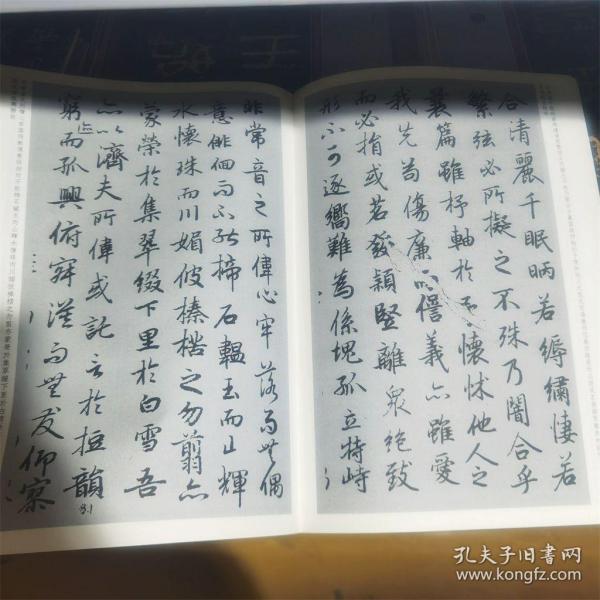 合清麗千眠昞若縟繡悽若
繁弦必所擬之不殊乃闇合乎
曩篇雖杼軸於予懷怵他人之
我先苟傷廉而𠎝義亦雖愛
而必捐或苕發穎豎離衆絕致
形不可逐嚮難為係塊孤立特峙
非常音之所偉心牢落而無偶
意俳佪而不能揥石韞玉而山輝
水懷珠而川媚彼榛楛之勿翦亦
蒙榮於集翠綴下里於白雪吾
亦以濟夫所偉或託言於短韻
窮迹而孤興俯寂漠而無友仰寥
孔夫子旧书网
www.kongfz.com